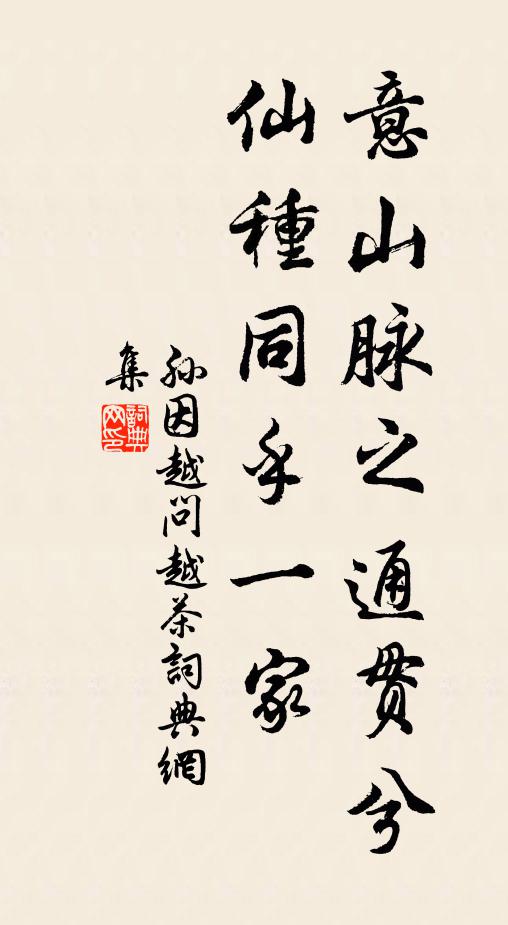 意山脉之通贯兮
仙種同乎一家
孙因越问越茶詞典網
集
詞典
网印